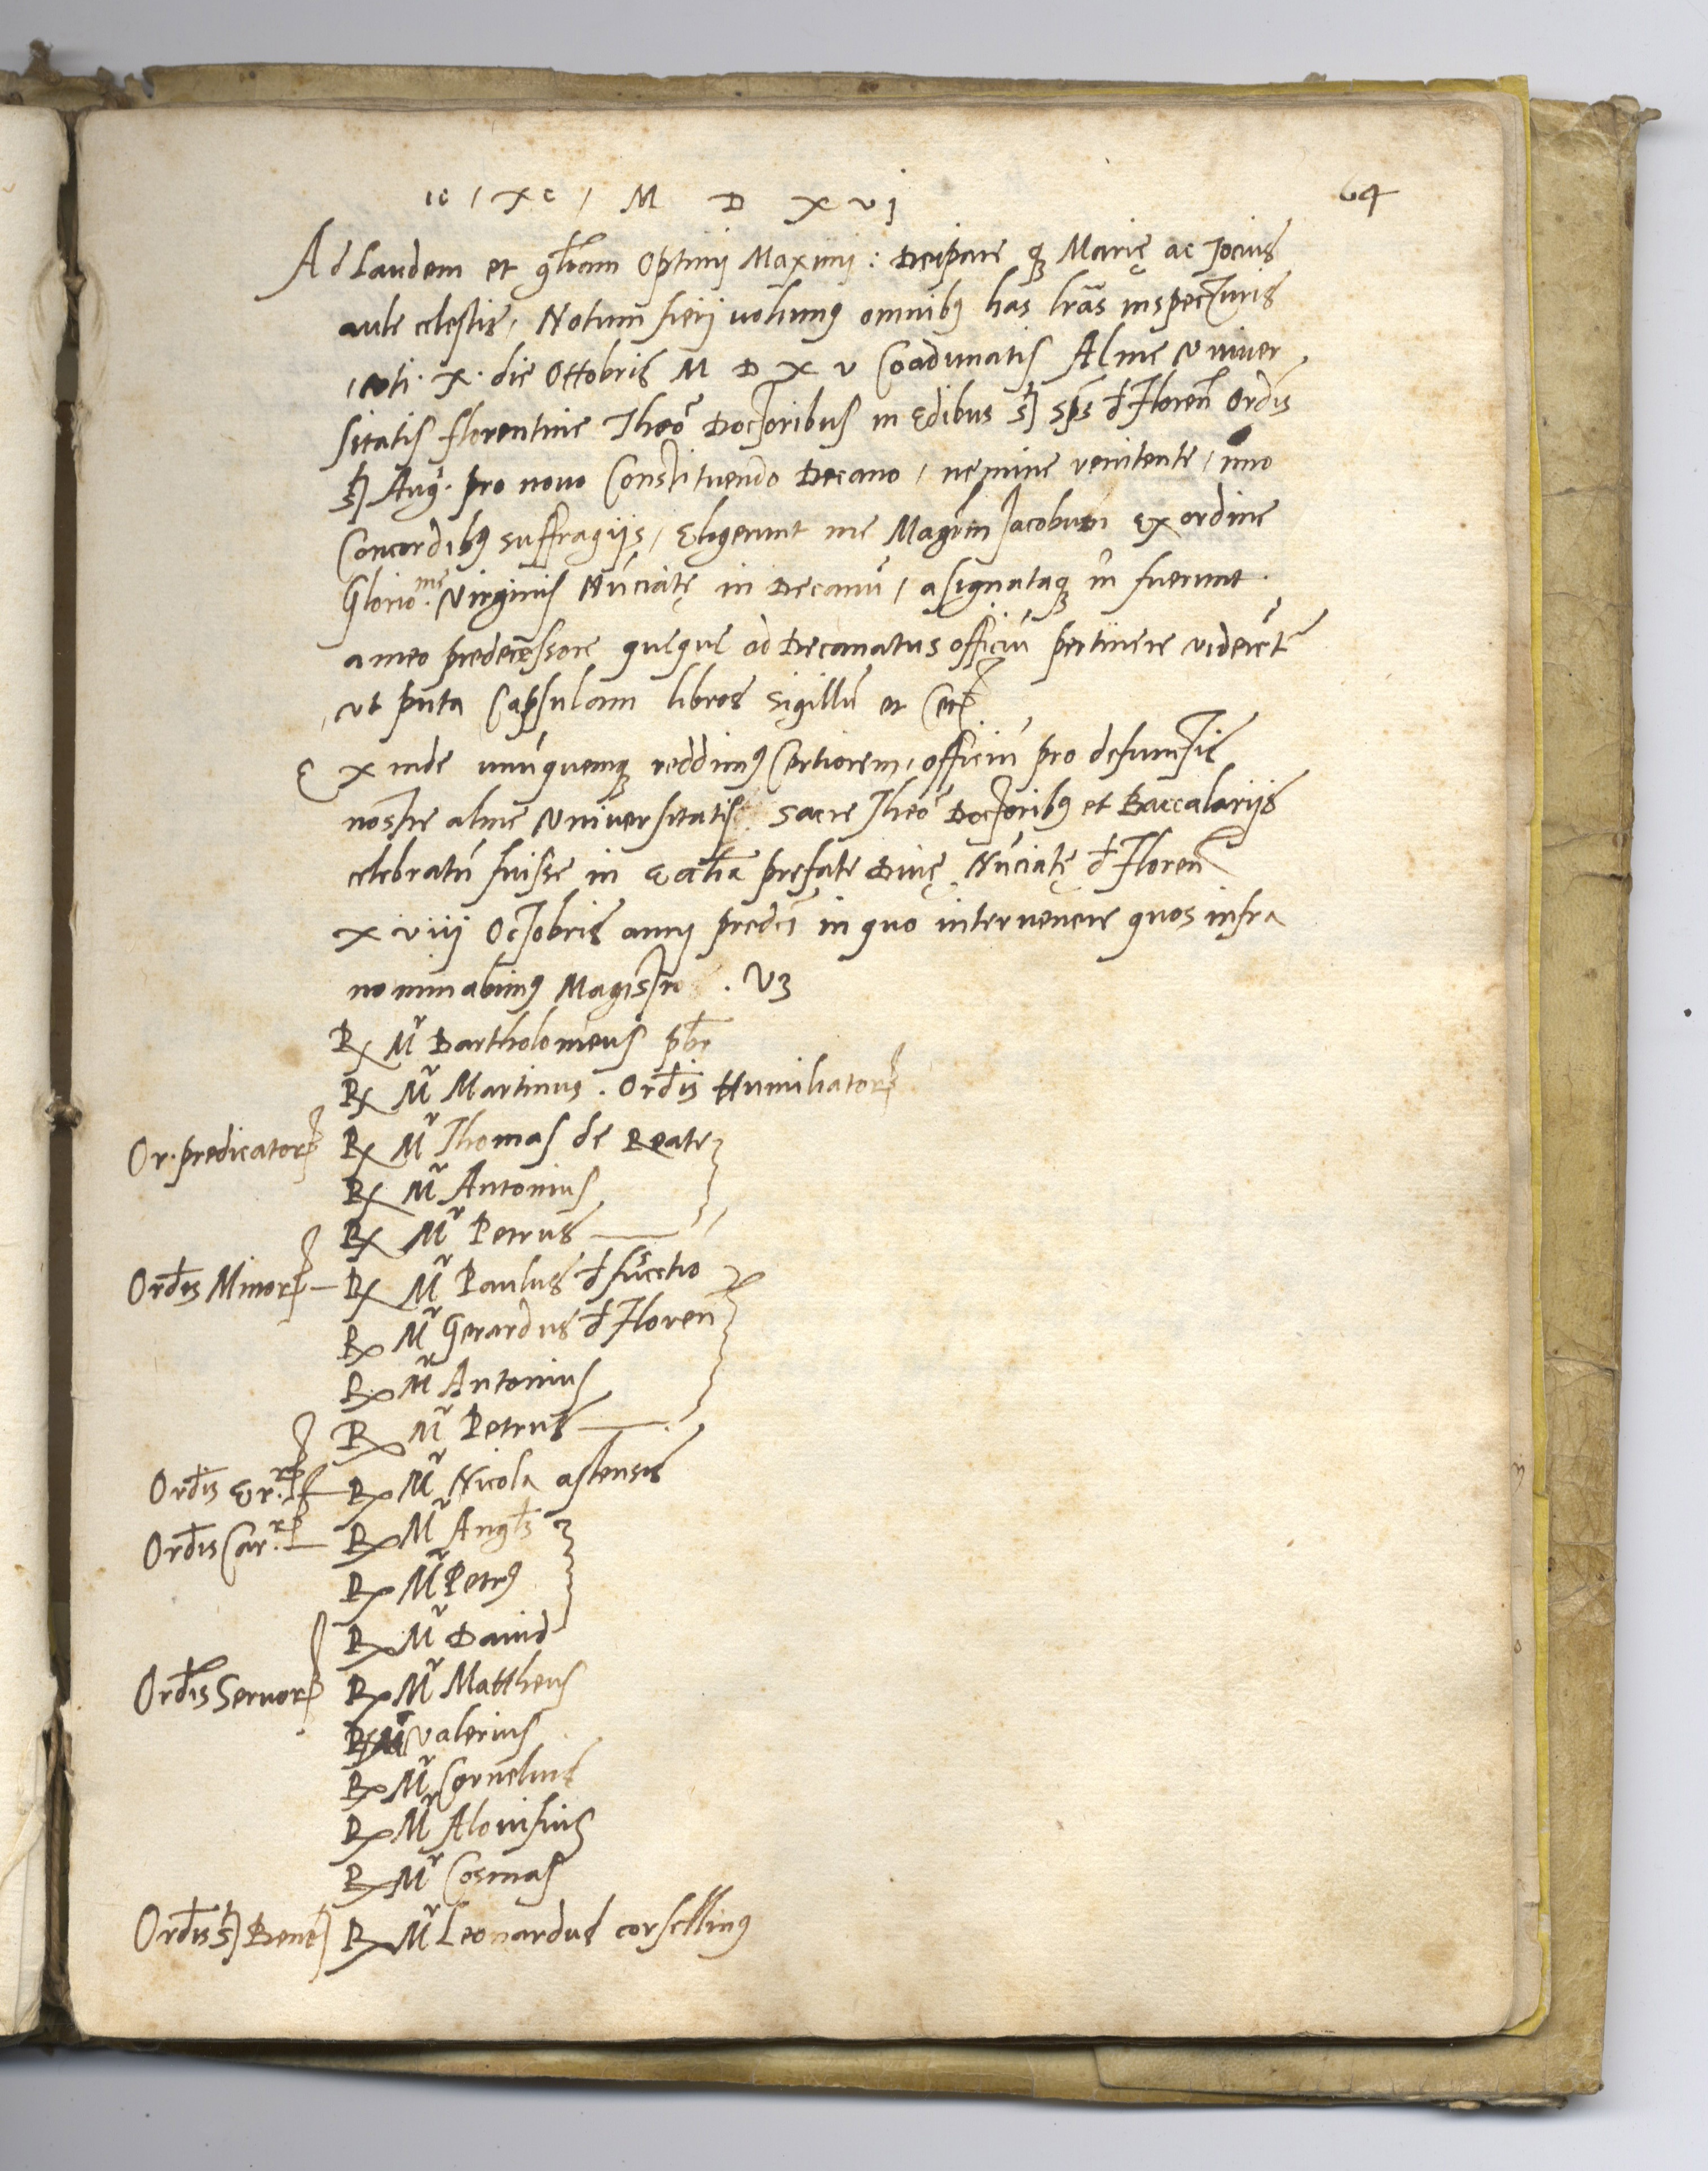 ıc / xc / M D XVI
64
Ad Laudem et gl̄iam Optimi Maximi : Deipare q3 Marię ac Tocius
aule celestis, Notum fierj uolumꝰ omnibꝰ has lr̄as inspecturis
x. die Ottobris M D X V Coadunatis Alme Vniuer
sitatis florentine Theo͞ Doctoribus in Edibus S͞j Sp͞s đ Floren͞ Ord͞is
S͞j Aug. pro nouo Constituendo Decano, nemine renitente, imo
Concordibꝰ suffragijs, Eligerunt me Mag͞rm Jacobum ex ordine
Glorio.me Virginis Nūciatę in Decanū, asignataq3 m͞ fuerunt
a meo predecessore queque ad Decanatus officiū pertinere videre͞t͞
ut puta Capsulam libros Sigillū et Cetꝭ
Exinde unūquemq3 reddimꝰ Certiorem, officiū pro defunctis
nostre alme Vniuersitatis Sacre Theo͞ Doctoribꝰ et Baccalarijs
celebratū fuisse in Eccl̄ia prefate Diuę Nūciatę đ Floren͞
xviij Octobris annj predc͞i in quo interuenere quos infra
nominabimꝰ Magistri . V3
Rx Mr Bartholomeus pb͞r
Rx Mr Martinus . Ord͞is Humiliatorꝝ
Or. predicatorꝝ Rx Mr Thomas de Reate
Rx Mr Antonius
Rx Mr Petrus
Ord͞is Minorꝝ Rx Mr Paulus đ fucetio
Rx Mr Gerardus đ Floren͞
Rx Mr Antonius
Rx Mr Petrus
Ord͞is Er.rꝝ Rx Mr Nicola astensis
Ord͞is Car.rꝝ Rx Mr Angl͞s
Rx Mr Petrꝰ
Rx Mr Dauid
Ord͞is Seruorꝝ Rx Mr Mattheus
Rx Mr Valerius
Rx Mr Cornelius
Rx Mr Alouisius
Rx Mr Cosmas
Ord͞is S͞j Ben͞tj Rx Mr Leonardus corsellinꝰ